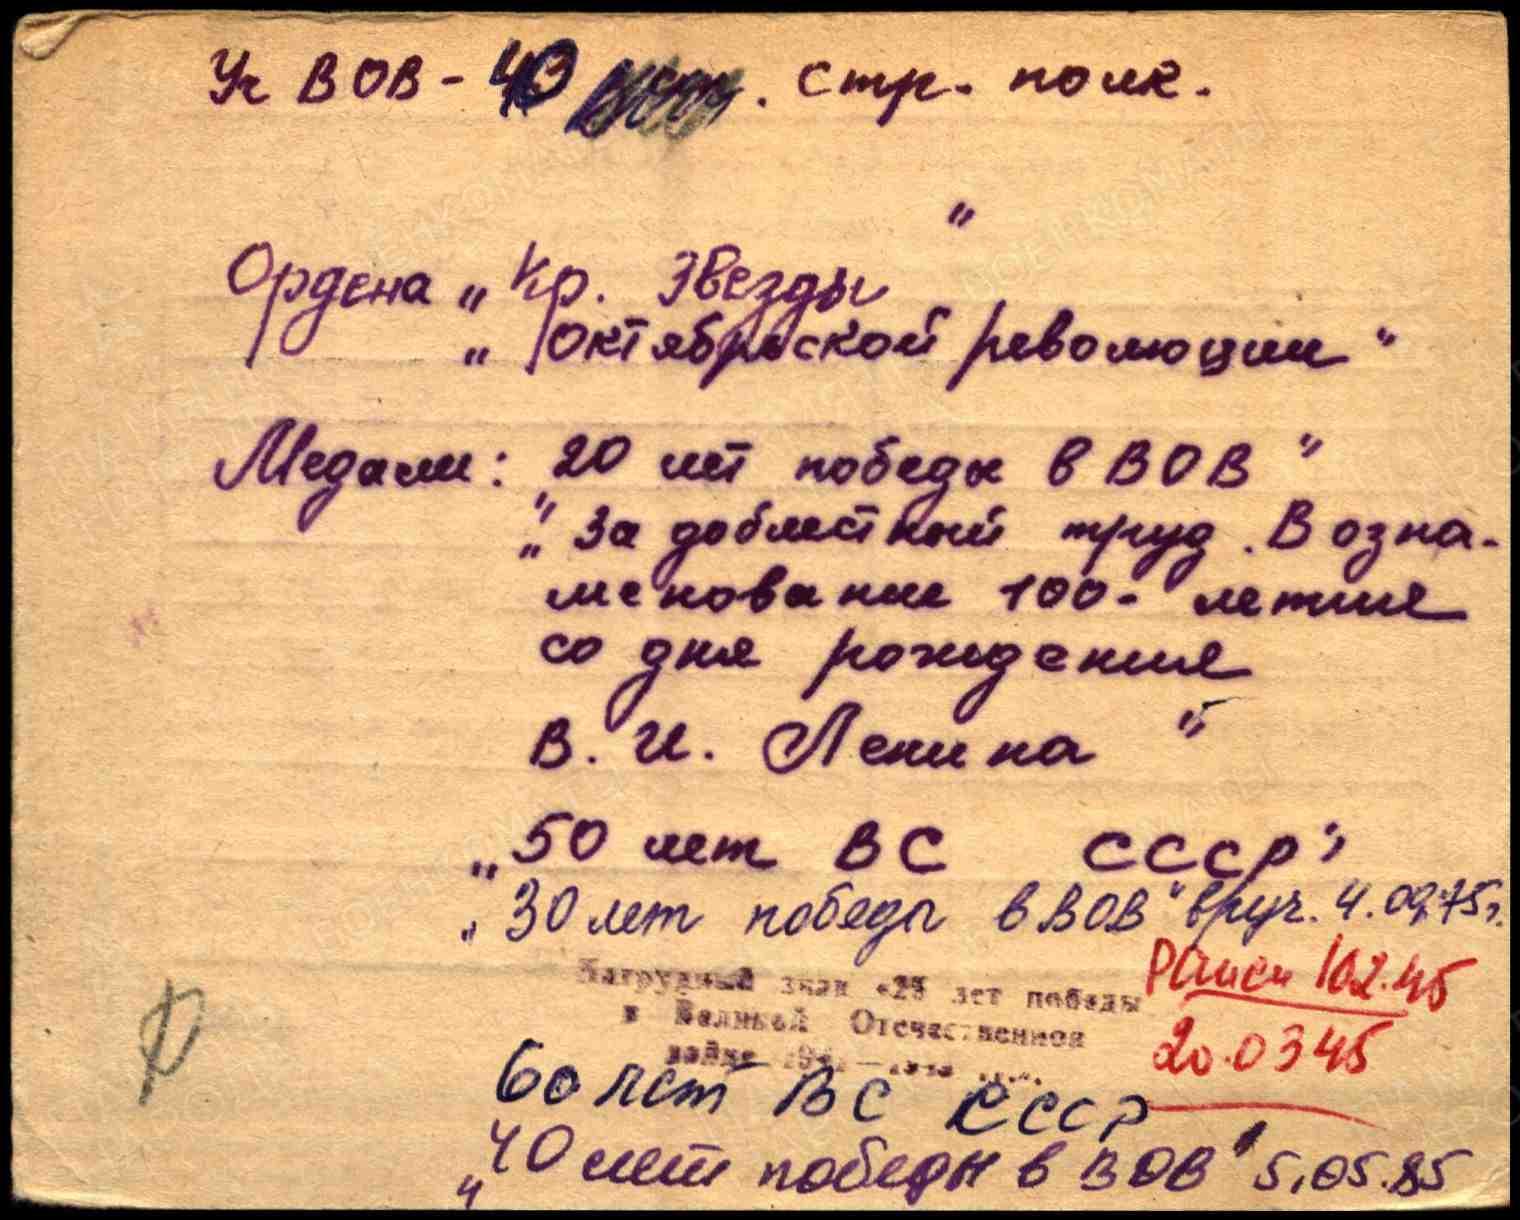 Уч ВОВ - 40 стр. полк.
Ордена „Кр. Звезды"
„Октябрьской революции"
Медали: „20 лет победы в ВОВ"
„За доблестный труд. В озна-
менование 100-летия
со дня рождения
В. И. Ленина"
„50 лет ВС СССР"
„30 лет победы в ВОВ" вруч. 4.09.75г.
Нагрудный знак «25 лет победы
в Великой Отечественной
войне
Ранен 10.2.45
20.03 45
60 лет ВС СССР
„40 лет победы в ВОВ" 5.05.85